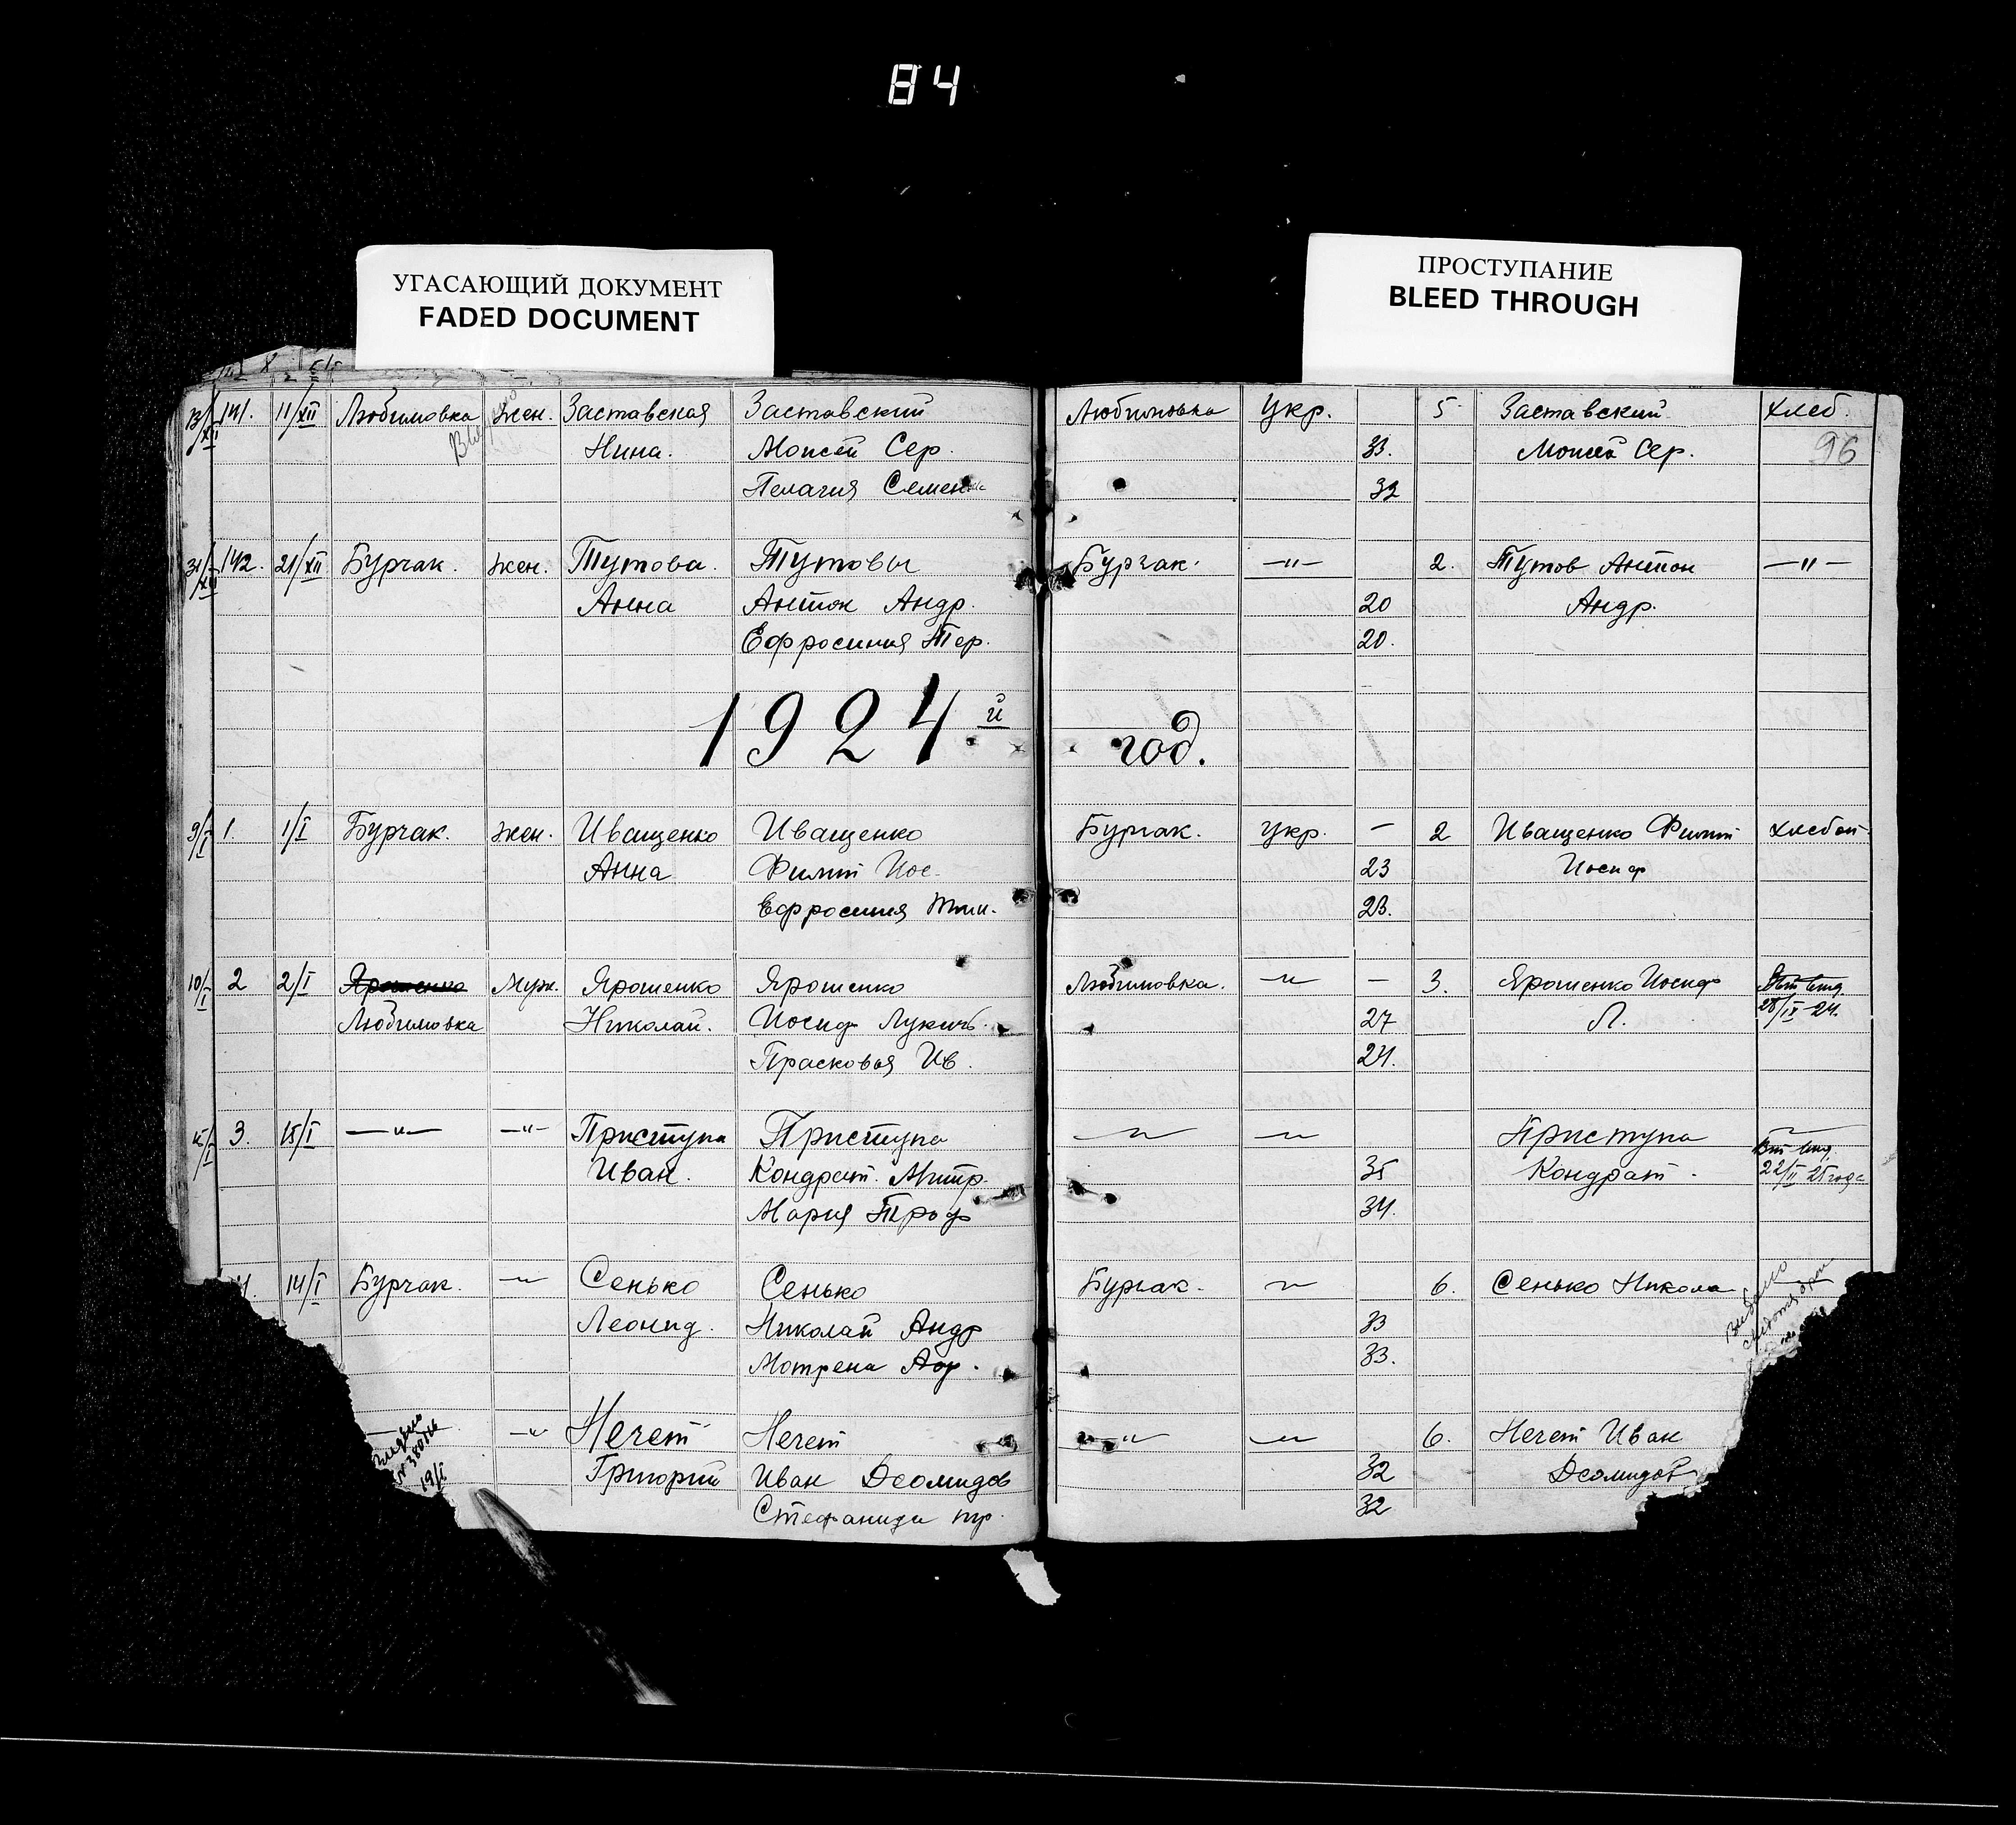 84
УГАСАЮЩИЙ ДОКУМЕНТ
FADED DOCUMENT
ПРОСТУПАНИЕ
BLEED THROUGH
141. 11/XII Любимовка жен. Заставская Заставский Любимовка Укр. 5 Заставский хлеб.
Нина. Моисей Сер. 33. Моисей Сер. 96
Пелагия Семен 32
31/XII 142. 21/XII Бурчак. жен. Тутова. Тутовы Бурчак. —"— 2. Тутов Антон —"—
Анна Антон Андр. 20 Андр.
Ефросиния Тер. 20.
1924й год.
9/I 1. 1/I Бурчак. жен. Иващенко Иващенко Бурчак. Укр. — 2 Иващенко Филип хлебоп
Анна Филип Иос. 23 Иосиф
Ефросиния Тим. 23.
10/I 2 2/I Ярошенко Муж. Ярошенко Ярошенко Любимовка. —"— — 3. Ярошенко Иосиф
Любимовка Николай. Иосиф Лукичъ 27 Л.
Прасковья Ив. 24.
15/I 3. 15/I —"— —"— Приступа Приступа —"— —"— Приступа
Иван. Кондрат. Митр. 35 Кондрат.
Мария Троф 34.
4. 14/I Бурчак. —"— Сенько Сенько Бурчак. —"— 6. Сенько Никола
Леонид. Николай Андр 33
Мотрена 33.
—"— Нечет Нечет —"— —"— 6. Нечет Иван
19/I Григорий Иван Деомидов 32 Деомидов
Стефанида 32